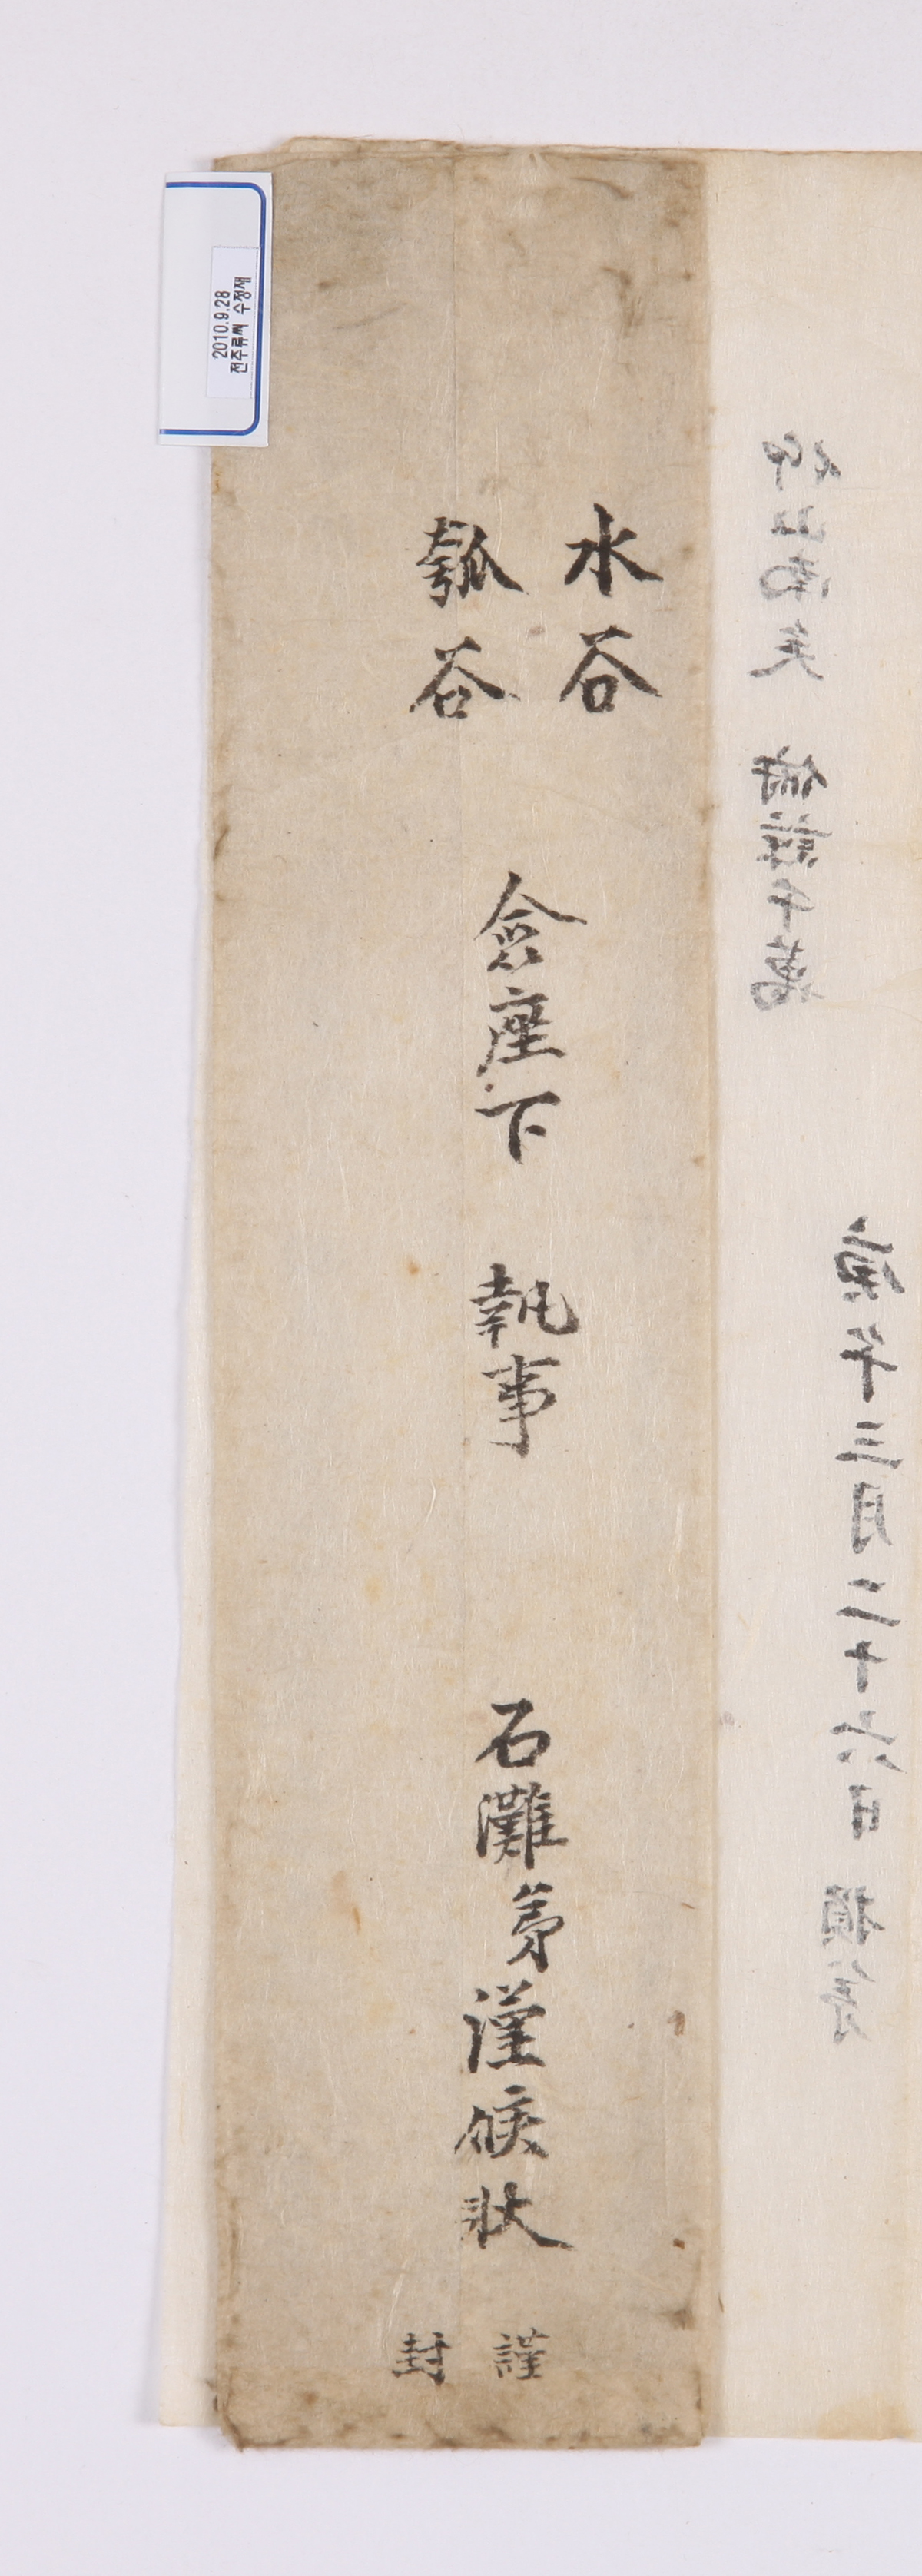 水谷
瓠谷
僉座下 執事
石灘弟謹候狀
謹封
庚午三月二十六日 損弟
千萬
2010.9.28
전주류씨 수정재